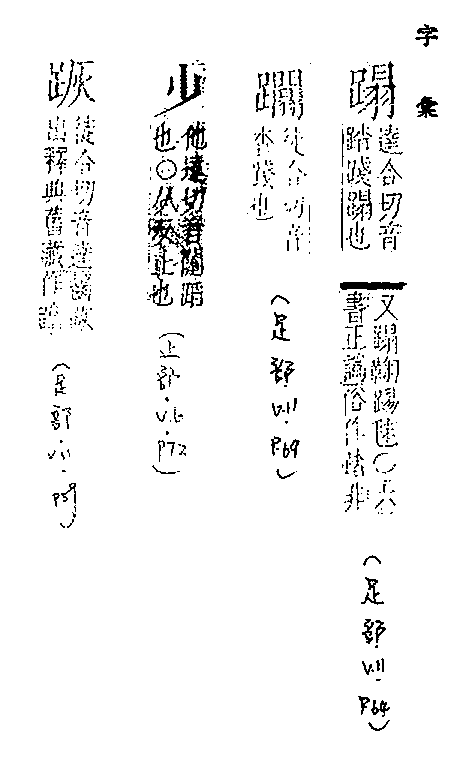 字彙
蹋
達合切音
踏踐蹋也
又蹋鞠蹋陸○六
書正譌俗作
非
(足部.V.11.P.64)
徒合切音
踐也
(足部.V.11.P.69)
他達切音闥蹈
也○从反止也
(止部.V.6.P.72)
徒合切音達
出釋典舊藏作
(足部.V.11.P.59)